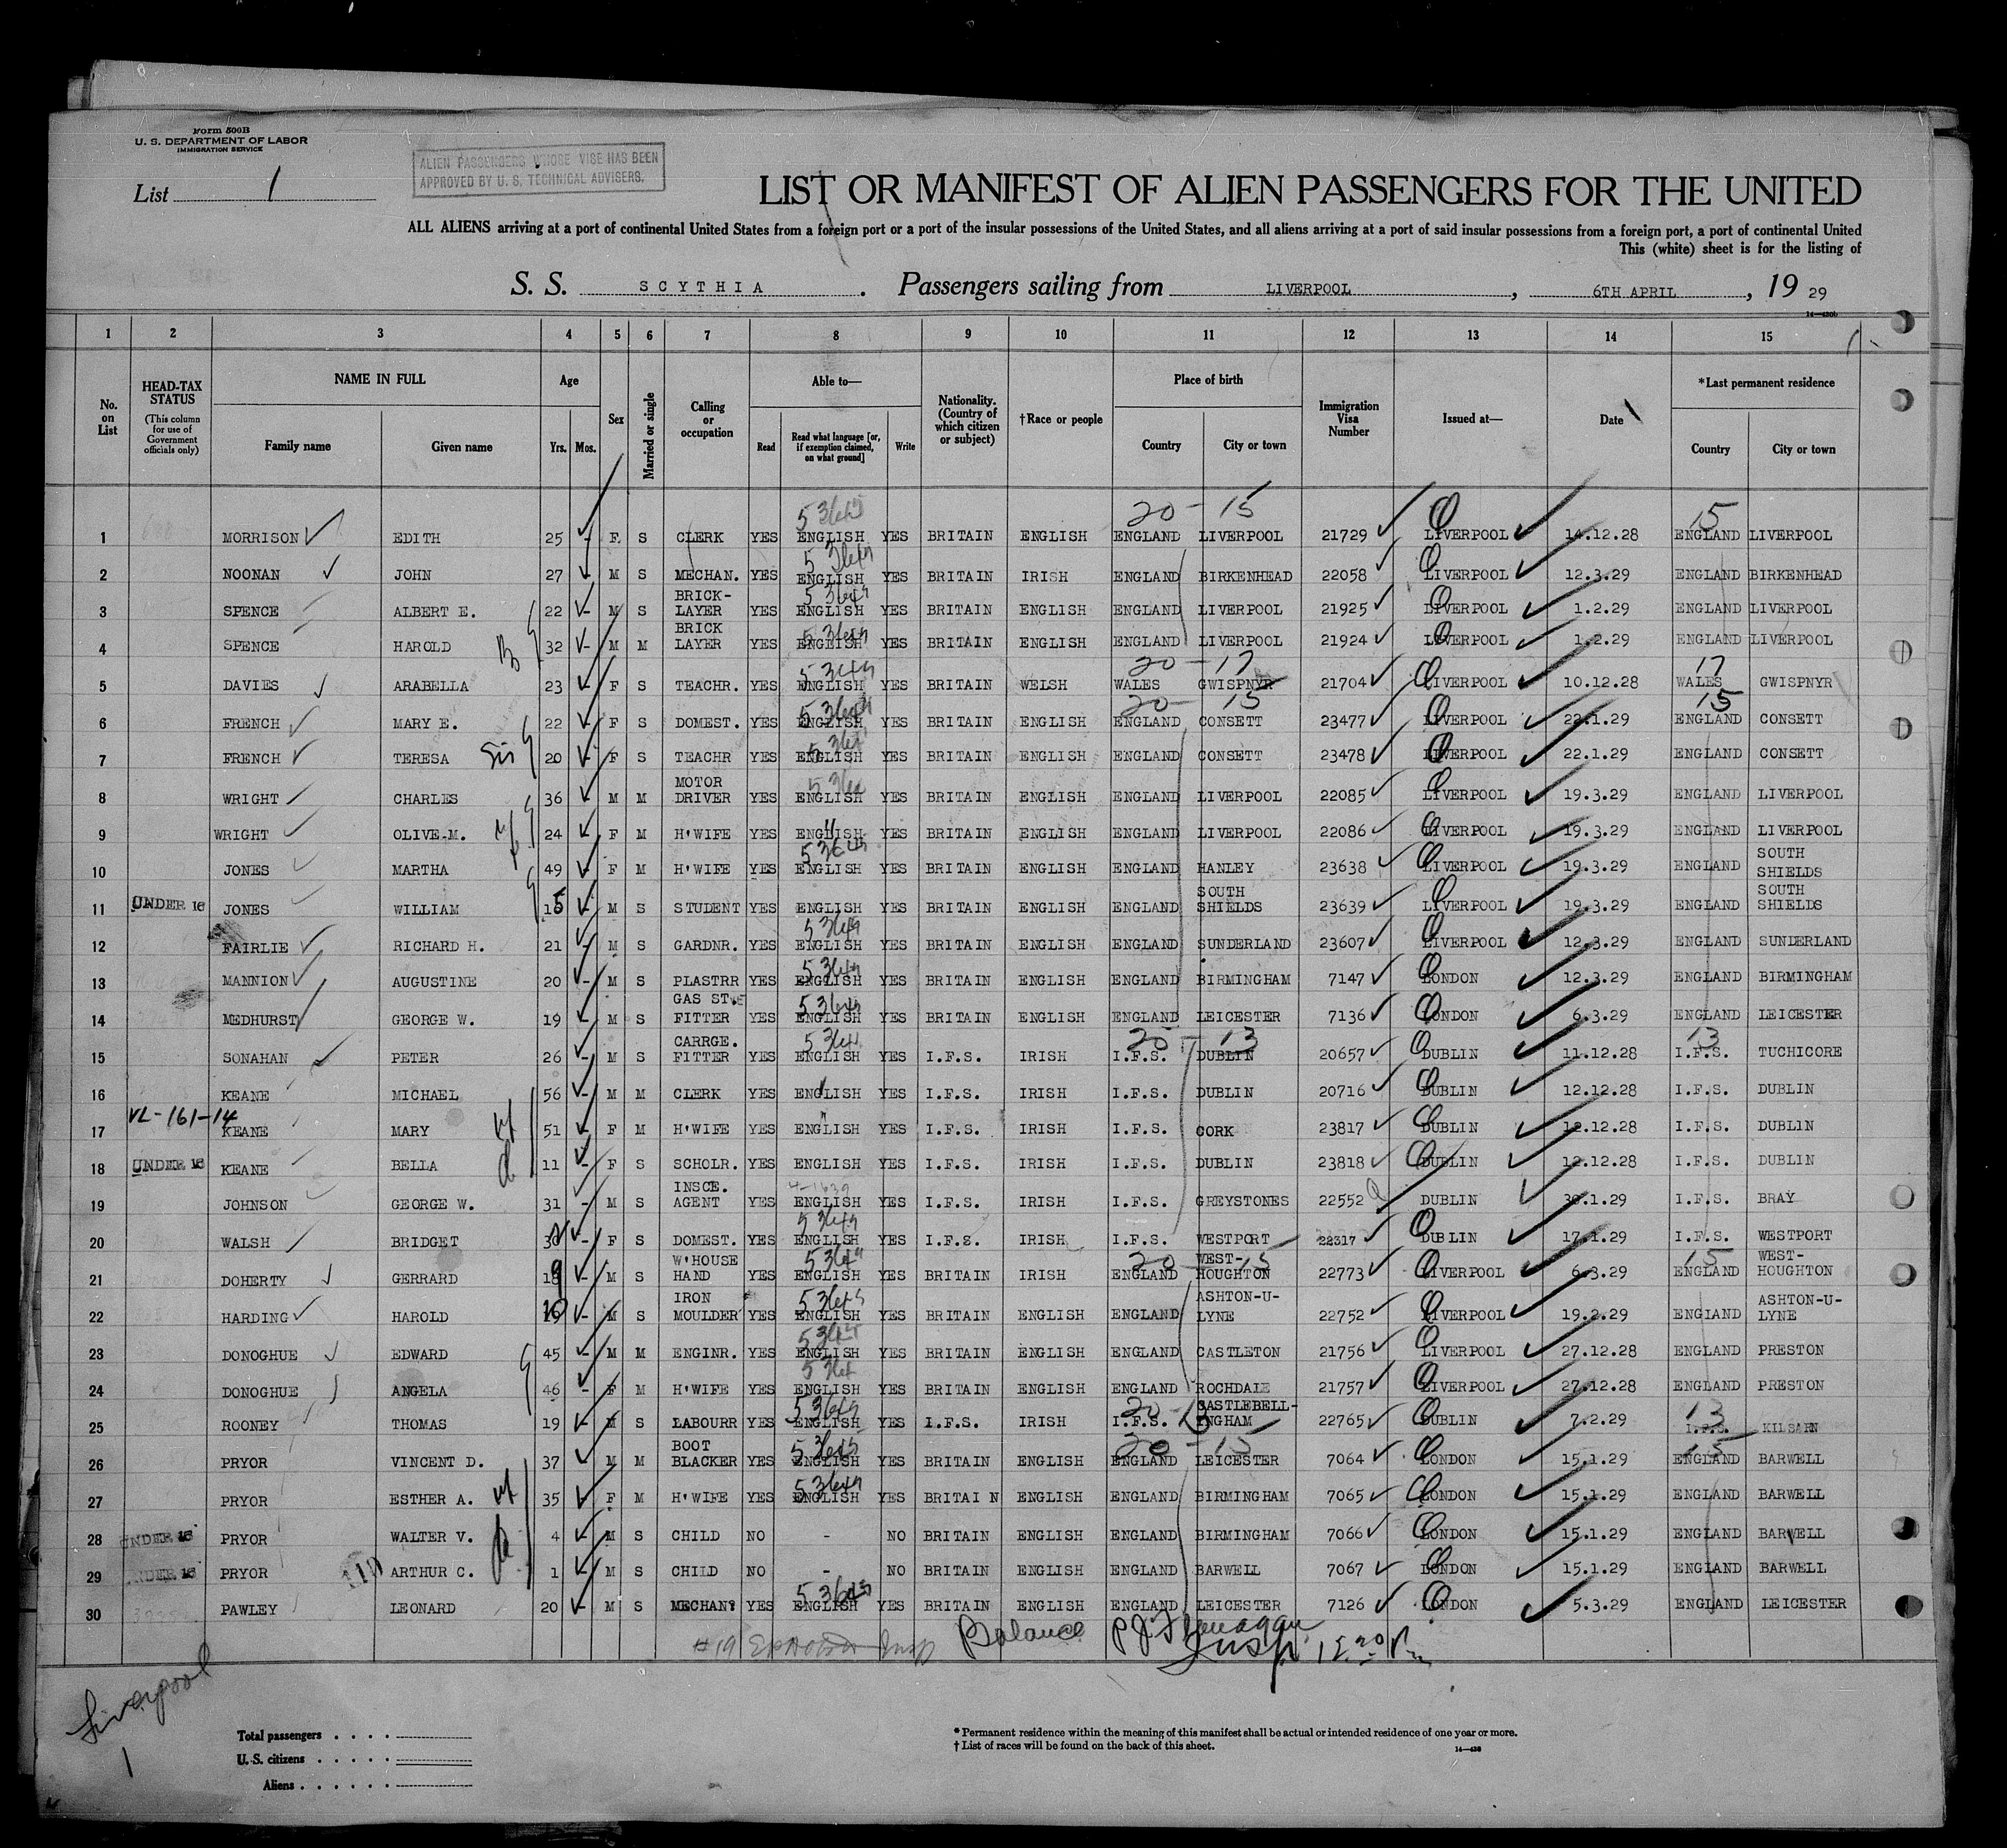 Form 500B
U. S. DEPARTMENT OF LABOR
IMMIGRATION SERVICE
ALIEN PASSENGERS WHOSE VISE HAS BEEN
APPROVED BY U. S. TECHNICAL ADVISERS.
List 1
LIST OR MANIFEST OF ALIEN PASSENGERS FOR THE UNITED
ALL ALIENS arriving at a port of continental United States from a foreign port or a port of the insular possessions of the United States, and all aliens arriving at a port of said insular possessions from a foreign port, a port of continental United
This (white) sheet is for the listing of
S. S. SCYTHIA. Passengers sailing from LIVERPOOL, 6TH APRIL, 19 29
1 2 3 4 5 6 7 8 9 10 11 12 13 14 15
No. on List
HEAD-TAX STATUS (This column for use of Government officials only)
NAME IN FULL Family name Given name
Age Yrs. Mos.
Sex
Married or single
Calling or occupation
Able to— Read Read what language [or, if exemption claimed, on what ground] Write
Nationality. (Country of which citizen or subject)
†Race or people
Place of birth Country City or town
Immigration Visa Number
Issued at—
Date
*Last permanent residence Country City or town
20 - 15 15
1 MORRISON EDITH 25 - F S CLERK YES ENGLISH YES BRITAIN ENGLISH ENGLAND LIVERPOOL 21729 LIVERPOOL 14.12.28 ENGLAND LIVERPOOL
2 NOONAN JOHN 27 - M S MECHAN. YES ENGLISH YES BRITAIN IRISH ENGLAND BIRKENHEAD 22058 LIVERPOOL 12.3.29 ENGLAND BIRKENHEAD
3 SPENCE ALBERT E. 22 - M S BRICK-LAYER YES ENGLISH YES BRITAIN ENGLISH ENGLAND LIVERPOOL 21925 LIVERPOOL 1.2.29 ENGLAND LIVERPOOL
4 SPENCE HAROLD 32 - M M BRICK LAYER YES ENGLISH YES BRITAIN ENGLISH ENGLAND LIVERPOOL 21924 LIVERPOOL 1.2.29 ENGLAND LIVERPOOL
20 - 17 17
5 DAVIES ARABELLA 23 - F S TEACHR. YES ENGLISH YES BRITAIN WELSH WALES GWISPNYR 21704 LIVERPOOL 10.12.28 WALES GWISPNYR
20 - 15 15
6 FRENCH MARY E. 22 - F S DOMEST. YES ENGLISH YES BRITAIN ENGLISH ENGLAND CONSETT 23477 LIVERPOOL 22.1.29 ENGLAND CONSETT
7 FRENCH TERESA Sis 20 - F S TEACHR YES ENGLISH YES BRITAIN ENGLISH ENGLAND CONSETT 23478 LIVERPOOL 22.1.29 ENGLAND CONSETT
8 WRIGHT CHARLES 36 M M MOTOR DRIVER YES ENGLISH YES BRITAIN ENGLISH ENGLAND LIVERPOOL 22085 LIVERPOOL 19.3.29 ENGLAND LIVERPOOL
9 WRIGHT OLIVE M. 24 - F M H'WIFE YES ENGLISH YES BRITAIN ENGLISH ENGLAND LIVERPOOL 22086 LIVERPOOL 19.3.29 ENGLAND LIVERPOOL
10 JONES MARTHA 49 F M H'WIFE YES ENGLISH YES BRITAIN ENGLISH ENGLAND HANLEY 23638 LIVERPOOL 19.3.29 ENGLAND SOUTH SHIELDS
11 UNDER 16 JONES WILLIAM 15 - M S STUDENT YES ENGLISH YES BRITAIN ENGLISH ENGLAND SOUTH SHIELDS 23639 LIVERPOOL 19.3.29 ENGLAND SOUTH SHIELDS
12 FAIRLIE RICHARD H. 21 - M S GARDNR. YES ENGLISH YES BRITAIN ENGLISH ENGLAND SUNDERLAND 23607 LIVERPOOL 12.3.29 ENGLAND SUNDERLAND
13 MANNION AUGUSTINE 20 - M S PLASTRR YES ENGLISH YES BRITAIN ENGLISH ENGLAND BIRMINGHAM 7147 LONDON 12.3.29 ENGLAND BIRMINGHAM
14 MEDHURST GEORGE W. 19 - M S GAS STVE FITTER YES ENGLISH YES BRITAIN ENGLISH ENGLAND LEICESTER 7136 LONDON 6.3.29 ENGLAND LEICESTER
20 - 13 13
15 SONAHAN PETER 26 - M S CARRGE. FITTER YES ENGLISH YES I.F.S. IRISH I.F.S. DUBLIN 20657 DUBLIN 11.12.28 I.F.S. TUCHICORE
16 KEANE MICHAEL 56 - M M CLERK YES ENGLISH YES I.F.S. IRISH I.F.S. DUBLIN 20716 DUBLIN 12.12.28 I.F.S. DUBLIN
VL-161-14
17 KEANE MARY 51 - F M H'WIFE YES ENGLISH YES I.F.S. IRISH I.F.S. CORK 23817 DUBLIN 12.12.28 I.F.S. DUBLIN
18 UNDER 16 KEANE BELLA 11 - F S SCHOLR. YES ENGLISH YES I.F.S. IRISH I.F.S. DUBLIN 23818 DUBLIN 12.12.28 I.F.S. DUBLIN
19 JOHNSON GEORGE W. 31 - M S INSCE. AGENT YES ENGLISH YES I.F.S. IRISH I.F.S. GREYSTONES 22552 DUBLIN 30.1.29 I.F.S. BRAY
20 WALSH BRIDGET 30 - F S DOMEST. YES ENGLISH YES I.F.S. IRISH I.F.S. WESTPORT 22317 DUBLIN 17.1.29 I.F.S. WESTPORT
20 - 15 15
21 DOHERTY GERRARD 19 - M S W'HOUSE HAND YES ENGLISH YES BRITAIN IRISH ENGLAND WEST-HOUGHTON 22773 LIVERPOOL 6.3.29 ENGLAND WEST-HOUGHTON
22 HARDING HAROLD 19 - M S IRON MOULDER YES ENGLISH YES BRITAIN ENGLISH ENGLAND ASHTON-U-LYNE 22752 LIVERPOOL 19.2.29 ENGLAND ASHTON-U-LYNE
23 DONOGHUE EDWARD 45 - M M ENGINR. YES ENGLISH YES BRITAIN ENGLISH ENGLAND CASTLETON 21756 LIVERPOOL 27.12.28 ENGLAND PRESTON
24 DONOGHUE ANGELA 46 - F M H'WIFE YES ENGLISH YES BRITAIN ENGLISH ENGLAND ROCHDALE 21757 LIVERPOOL 27.12.28 ENGLAND PRESTON
20 - 13 13
25 ROONEY THOMAS 19 - M S LABOURR YES ENGLISH YES I.F.S. IRISH I.F.S. CASTLEBELL-INGHAM 22765 DUBLIN 7.2.29 I.F.S. KILSARN
20 - 15 15
26 PRYOR VINCENT D. 37 M M BOOT BLACKER YES ENGLISH YES BRITAIN ENGLISH ENGLAND LEICESTER 7064 LONDON 15.1.29 ENGLAND BARWELL
27 PRYOR ESTHER A. 35 - F M H'WIFE YES ENGLISH YES BRITAIN ENGLISH ENGLAND BIRMINGHAM 7065 LONDON 15.1.29 ENGLAND BARWELL
28 UNDER 16 PRYOR WALTER V. 4 - M S CHILD NO - NO BRITAIN ENGLISH ENGLAND BIRMINGHAM 7066 LONDON 15.1.29 ENGLAND BARWELL
29 UNDER 16 PRYOR ARTHUR C. 1 - M S CHILD NO - NO BRITAIN ENGLISH ENGLAND BARWELL 7067 LONDON 15.1.29 ENGLAND BARWELL
30 PAWLEY LEONARD 20 - M S MECHAN. YES ENGLISH YES BRITAIN ENGLISH ENGLAND LEICESTER 7126 LONDON 5.3.29 ENGLAND LEICESTER
#19 Insp Balance P J Flanagan Insp
Liverpool
1
Total passengers
U. S. citizens
Aliens
* Permanent residence within the meaning of this manifest shall be actual or intended residence of one year or more.
† List of races will be found on the back of this sheet.